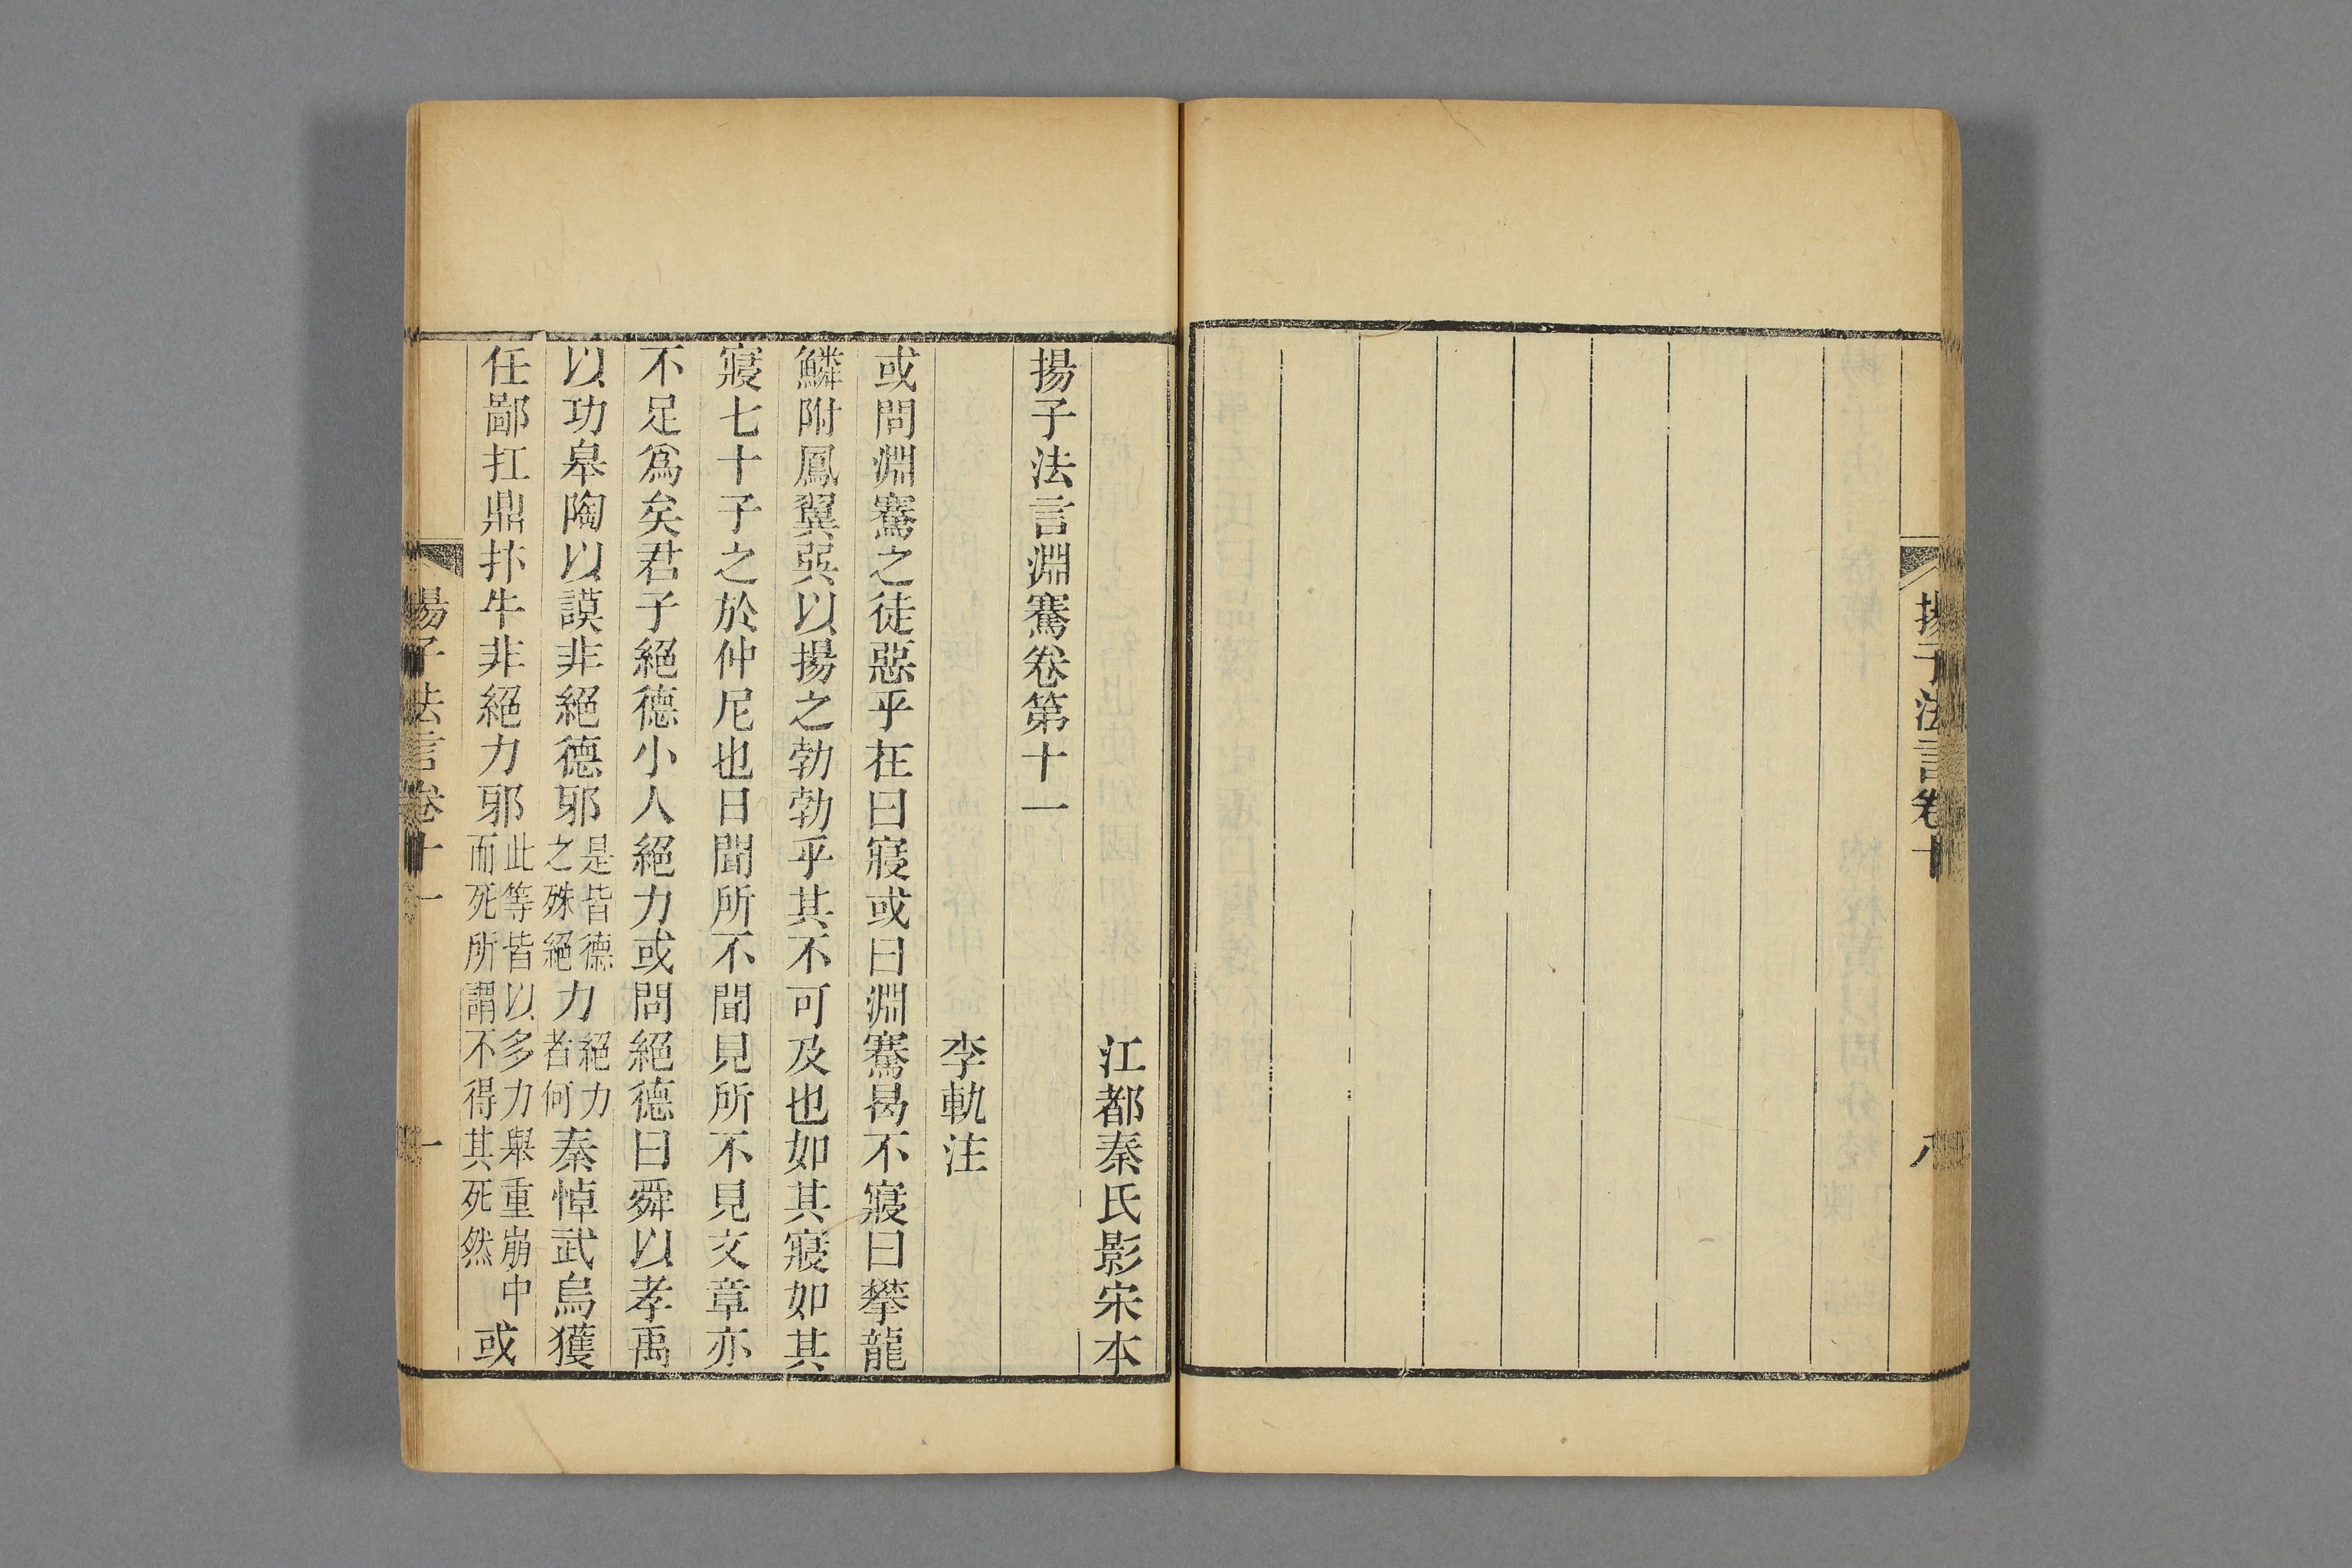 揚子法言卷十
八
江都秦氏影宋本
揚子法言淵騫卷第十一
李軌注
或問淵騫之徒惡乎在曰寢或曰淵騫曷不寢曰攀龍
鱗附鳳翼巽以揚之勃勃乎其不可及也如其寢如其
寢七十子之於仲尼也日聞所不聞見所不見文章亦
不足爲矣君子絕德小人絕力或問絕德曰舜以孝禹
以功皋陶以謨非絕德邪是皆德之殊絕力絕力者何秦悼武烏獲
任鄙扛鼎抃牛非絕力邪此等皆以多力舉重崩中而死所謂不得其死然或
揚子法言卷十一
一